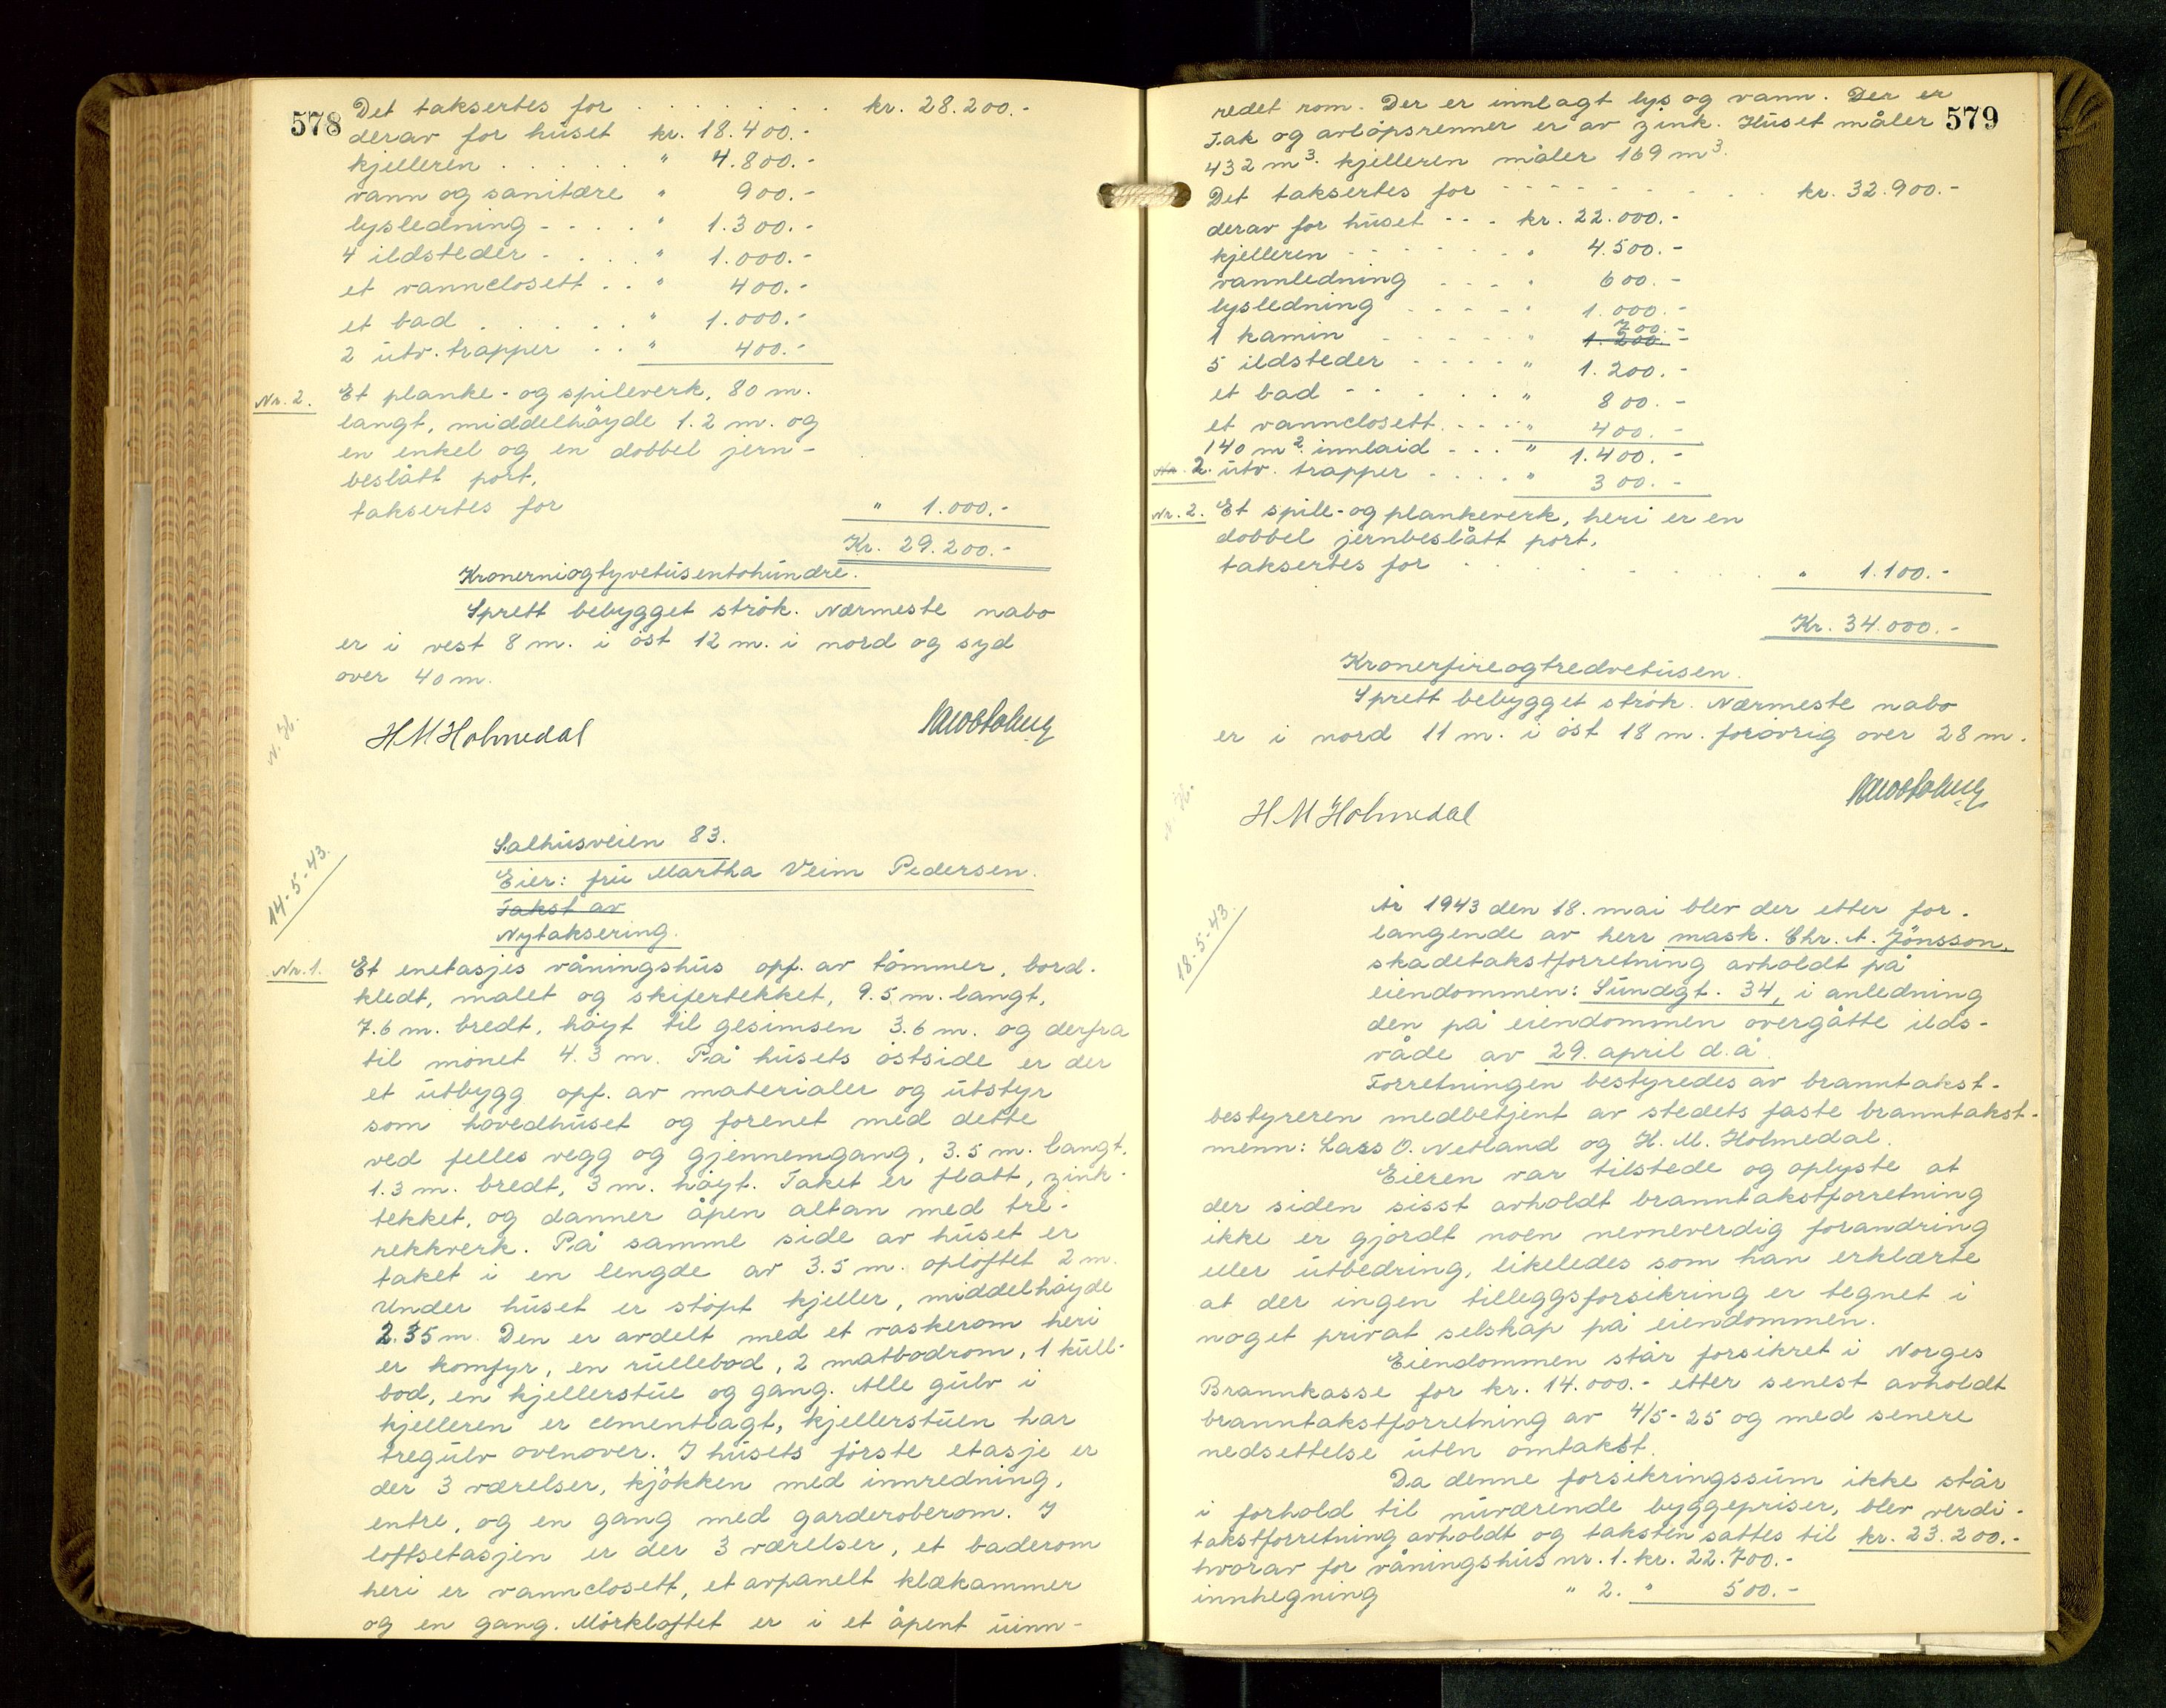 578
Det taksertes for . . . . . . . kr. 28.200.-
derav for húset kr. 18.400.-
kjelleren . . . . . " 4.800.-
vann og sanitære " 900.-
lysledning - . . . " 1.300.-
4 ildsteder - . . . " 1.000.-
et vannclosett . . " 400.-
et bad . . . . . " 1.000.-
2 útv. trapper . . " 400.-
Nr. 2. Et planke- og spileverk, 80 m.
langt, middelhöyde 1.2 m. og
en enkel og en dobbel jern-
beslått port,
taksertes for " 1.000.-
Kr. 29.200.-
Kronerniogtyvetúsentohúndre.
Sprett bebygget strök. Nærmeste nabo
er i vest 8 m. i öst 12 m. i nord og syd
over 40 m.
N. H.
H M Holmedal
14-5-43.
Salhúsveien 83.
Eier: frú Martha Veim Pedersen.
Takst av
Nytaksering.
Nr. 1. Et enetasjes våningshús opf. av tömmer, bord-
kledt, malet og skifertekket, 9.5 m. langt,
7.6 m. bredt, höyt til gesimsen 3.6 m. og derfra
til mönet 4.3 m. På húsets östside er der
et útbygg opf. av materialer og útstyr
som hovedhúset og forenet med dette
ved felles vegg og gjennemgang, 3.5 m. langt,
1.3 m. bredt, 3 m. höyt. Taket er flatt, zink-
tekket, og danner åpen altan med tre-
rekkverk. På samme side av húset er
taket i en lengde av 3.5 m. oplöftet 2 m.
Under húset er stöpt kjeller, middelhöyde
2.35 m. Den er avdelt med et vaskerom heri
er komfyr, en rúllebod, 2 matbodrom, 1 kúll-
bod, en kjellerstúe og gang. Alle gúlv i
kjelleren er cementlagt, kjellerstúen har
tregúlv ovenover. I húsets förste etasje er
der 3 værelser, kjökken med innredning,
entre, og en gang med garderoberom. I
loftsetasjen er der 3 værelser, et baderom
heri er vannclosett, et avpanelt klækammer
og en gang. Mörkloftet er i et åpent úinn-
579
redet rom. Der er innlagt lys og vann. Der er
Tak og avlöpsrenner er av zink. Húset måler
432 m³. kjelleren måler 169 m³.
Det taksertes for - - - - - - - . kr. 32.900.-
derav for húset - - . kr. 22.000.-
kjelleren - - - - - " 4.500.-
vannledning - - - " 600.-
lysledning - - - - " 1.000.-
1 kamin - - - - - " 1.200.- 700.-
5 ildsteder - - - - " 1.200.-
et bad - - - . . . " 800.-
et vannclosett. - - - " 400.-
140 m² innlaid - - . " 1.400.-
Nr. 2. útv. trapper - . . . " 300.-
Nr. 2. Et spile- og plankeverk, heri er en
dobbel jernbeslått port,
taksertes for . . . . . . . " 1.100.-
Kr. 34.000.-
Kronerfireogtredvetúsen.
Sprett bebygget strök. Nærmeste nabo
er i nord 11 m. i öst 18 m. forövrig over 28 m.
N. H.
H M Holmedal
18-5-43.
År 1943 den 18. mai blev der etter for-
langende av herr mask. Chr. A. Jönsson,
skadetakstforretning avholdt på
eiendommen: Súndgt. 34, i anledning
den på eiendommen overgåtte ilds-
våde av 29. april d.å.
Forretningen bestyredes av branntakst-
bestyreren medbetjent av stedets faste branntakst-
menn: Lars O. Netland og H. M. Holmedal.
Eieren var tilstede og oplyste at
der siden sisst avholdt branntakstforretning
ikke er gjördt noen nevneverdig forandring
eller útbedring, likeledes som han erklærte
at der ingen tilleggsforsikring er tegnet i
noget privat selskap på eiendommen.
Eiendommen står forsikret i Norges
Brannkasse for kr. 14.000.- etter senest avholdt
branntakstforretning av 4/5-25 og med senere
nedsettelse úten omtakst.
Da denne forsikringssúm ikke står
i forhold til núværende byggepriser, blev verdi-
takstforretning avholdt og taksten sattes til kr. 23.200.-
hvorav for våningshús nr. 1. kr. 22.700.-
innhegning " 2. " 500.-